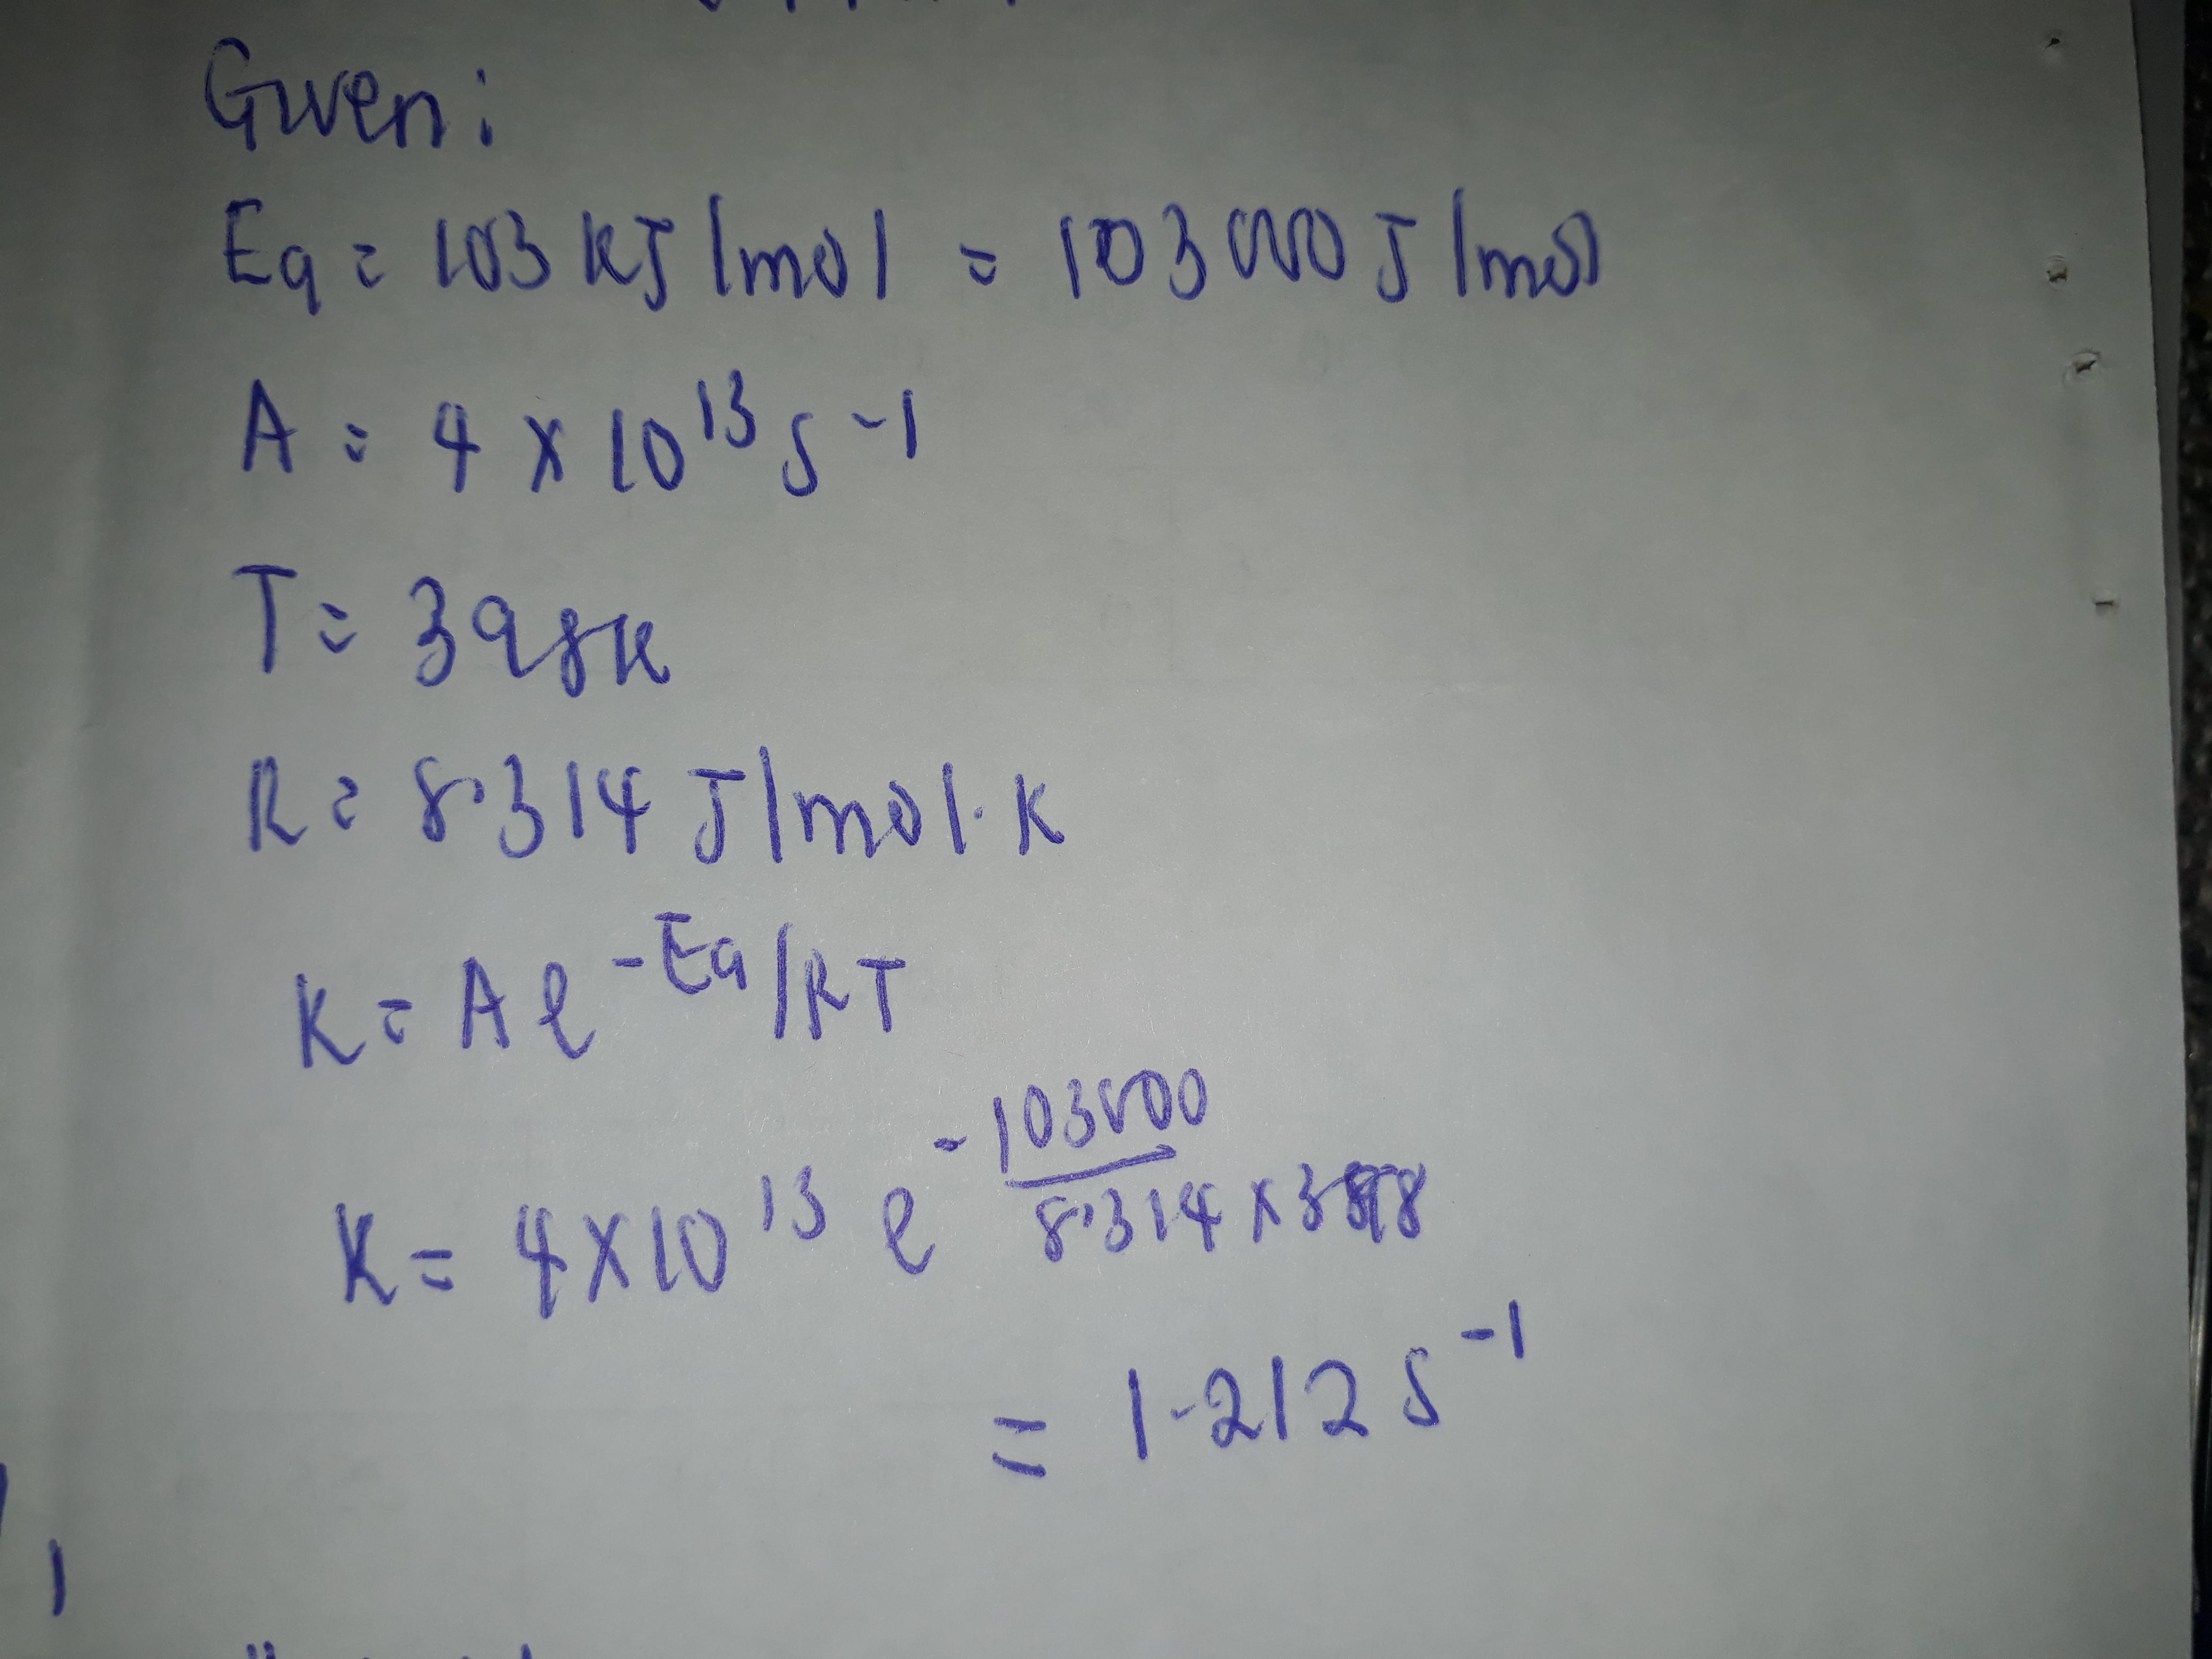 Given:
Ea = 103 kJ/mol = 103000 J/mol
A = 4 × 10¹³ s⁻¹
T = 398K
R = 8.314 J/mol.K
K = A e^-Ea/RT
K = 4×10¹³ e^-103000/8.314×398
= 1.212 s⁻¹